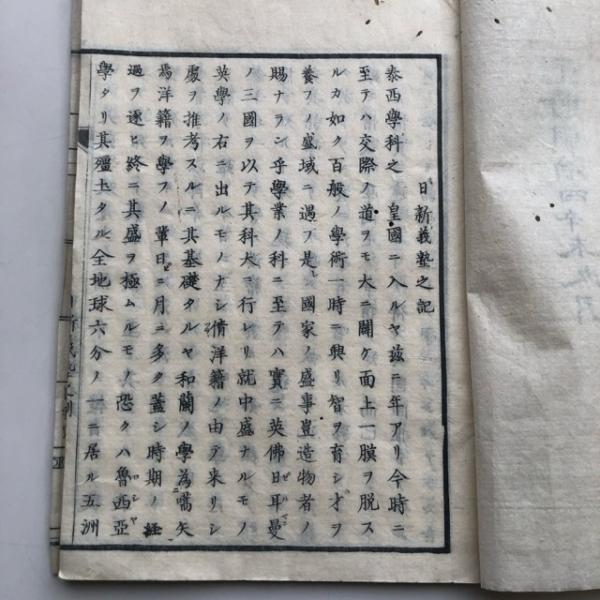 日新義塾之記
泰西學科之皇國ニ入ルヤ茲ニ年アリ今時ニ
至テハ交際ノ道ヲモ大ニ闢ケ面上一膜ヲ脱ス
ルカ如ク百般ノ學術一時ニ興リ智ヲ育シオヲ
養フノ盛域ニ遇フ是レ國家ノ盛事豈造物者ノ
賜ナラン乎學業ノ科ニ至テハ實ニ英佛日耳曼
ノ三國ヲ以テ其科大ニ行レリ就中盛ナルモノ
英學ノ右ニ出ルモノナシ倩洋籍ノ由テ来リシ
處ヲ推考スルニ其基礎タルヤ和蘭ノ學為嚆矢
焉洋籍ヲ學フノ輩日ニ月ニ多ク蓋シ時期ノ経
過ヲ逐ヒ終ニ其盛ヲ極ムルモノ恐クハ魯西亞
學タリ其殭土タル全地球六分ノ一ニ居ル五洲